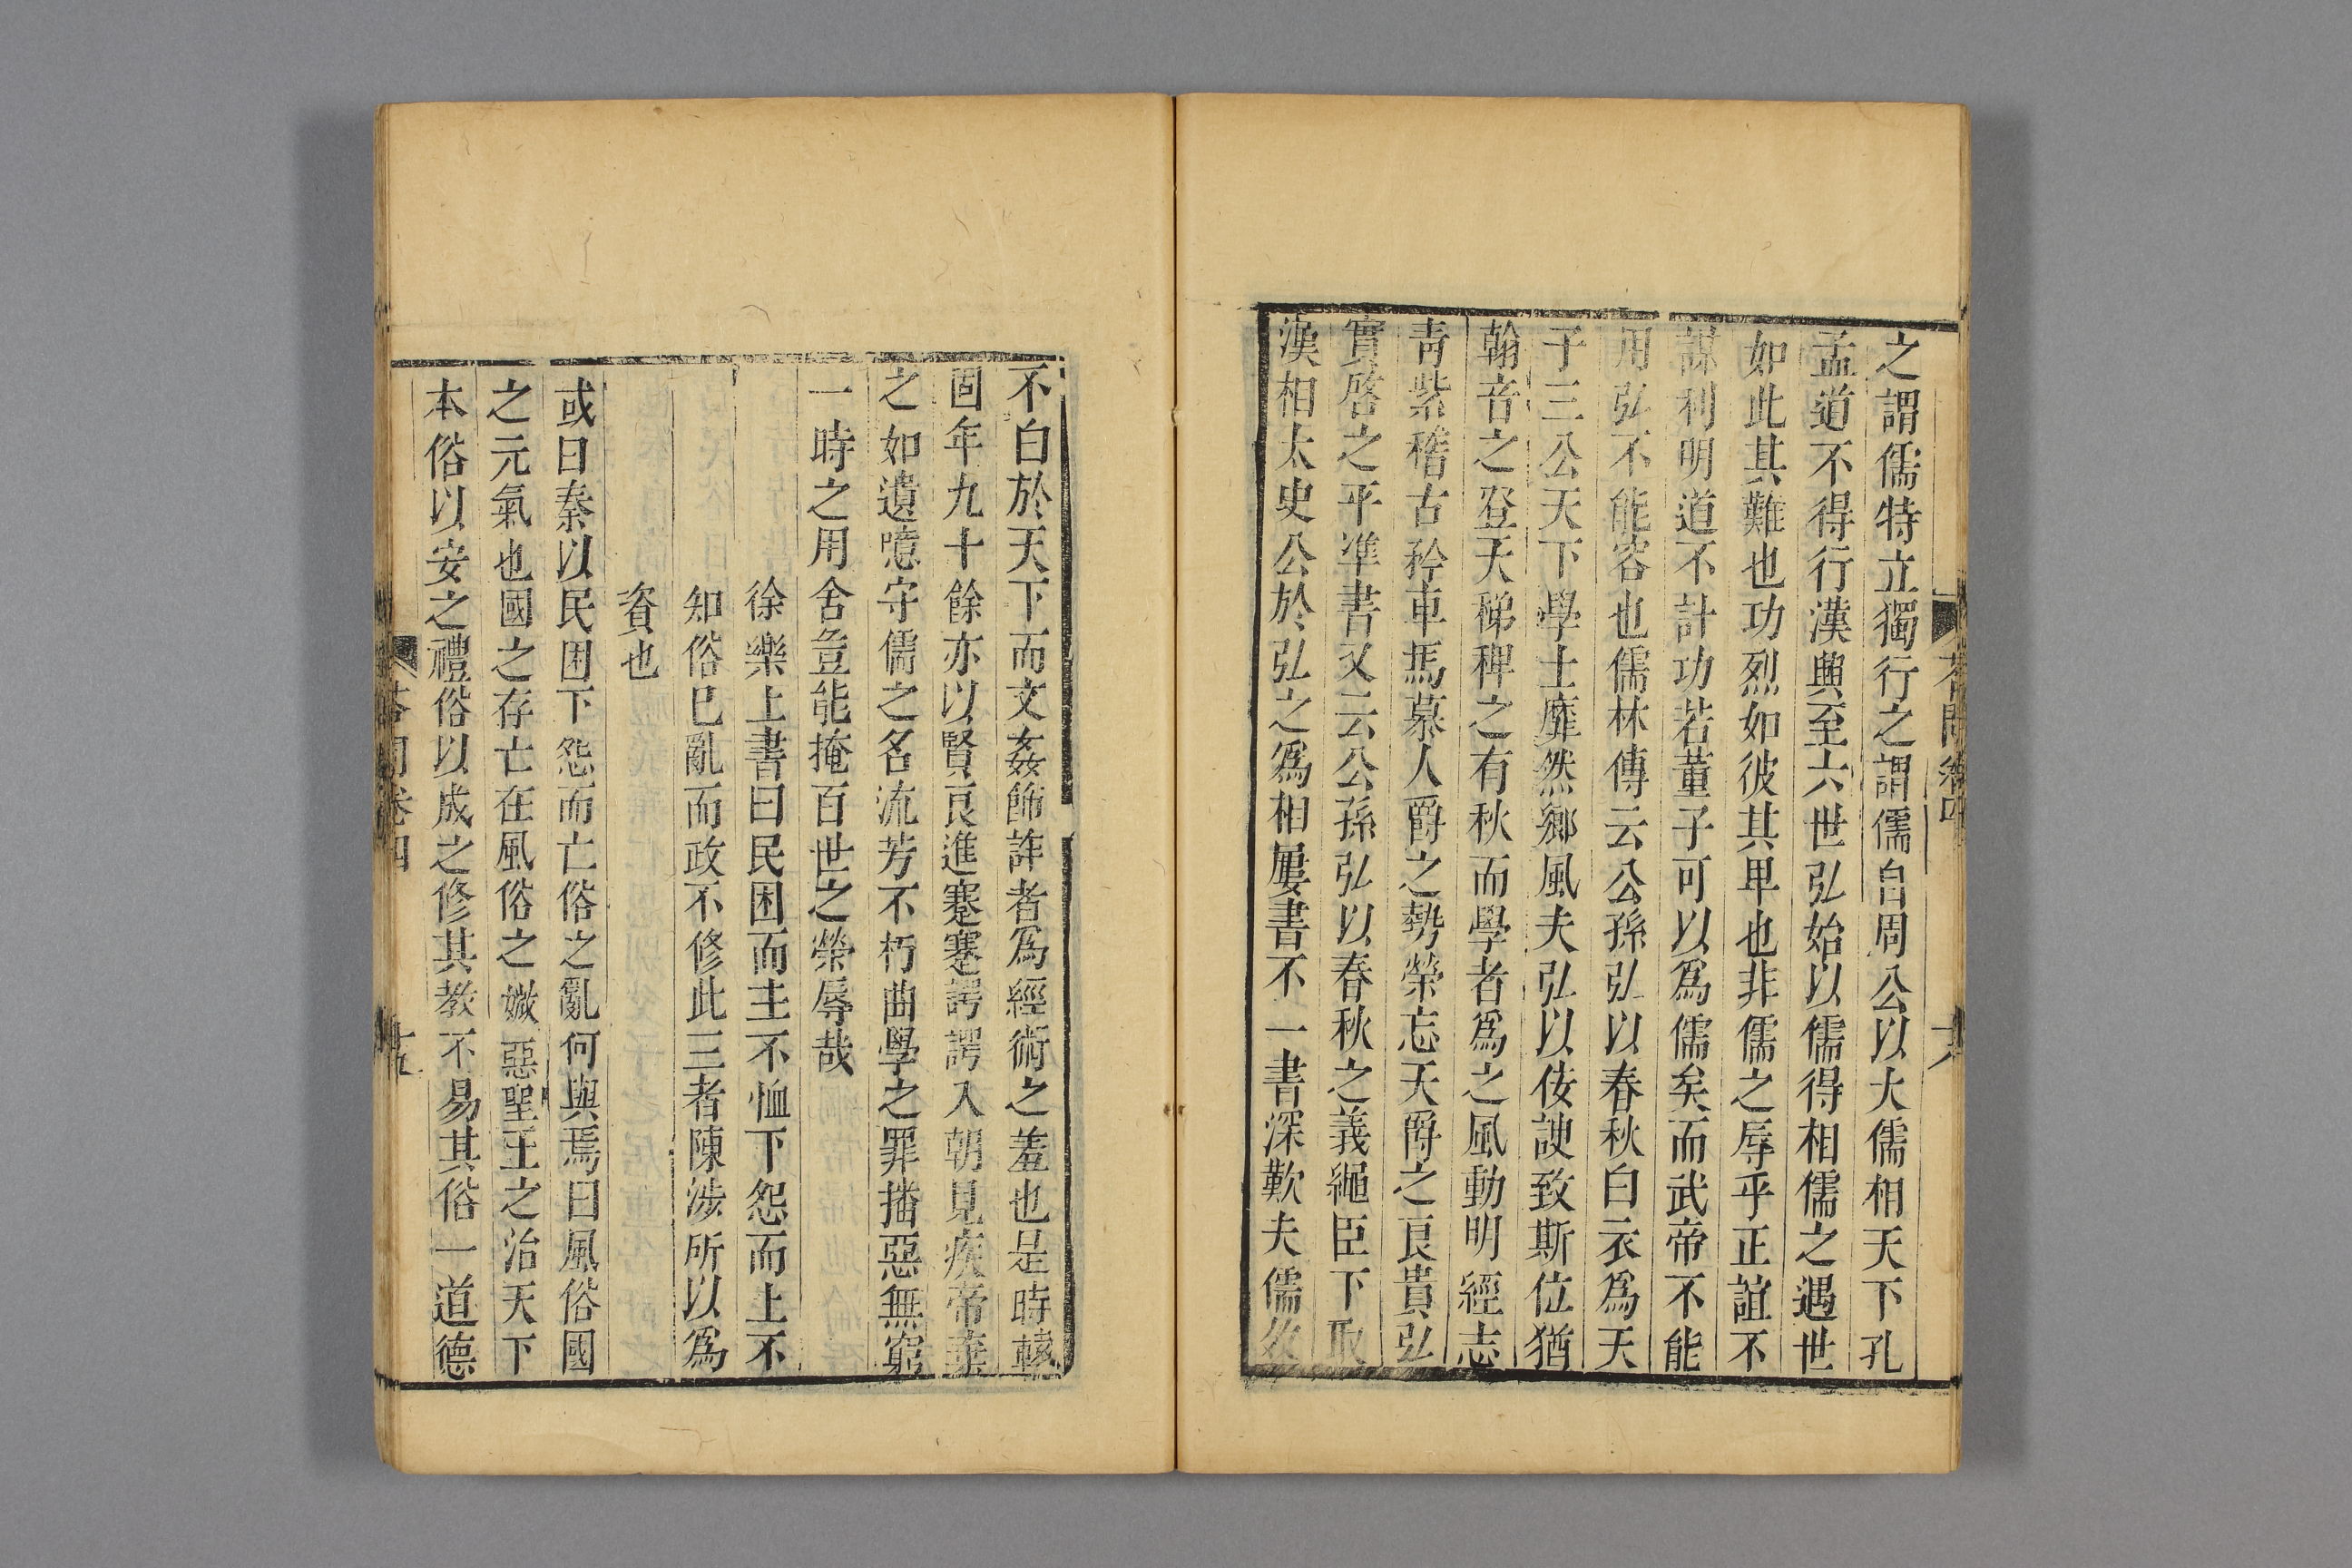 之謂儒特立獨行之謂儒自周公以大儒相天下孔
孟道不得行漢興至六世弘始以儒得相儒之遇世
如此其難也功烈如彼其卑也非儒之辱乎正誼不
謀利明道不計功若董子可以爲儒矣而武帝不能
用弘不能容也儒林傳云公孫弘以春秋白衣爲天
子三公天下學士靡然鄉風夫弘以佞諛致斯位猶
翰音之登天稊稗之有秋而學者爲之風動明經志
靑紫稽古矜車馬慕人爵之勢榮忘天爵之良貴弘
實啓之平準書又云公孫弘以春秋之義繩臣下取
漢相太史公於弘之爲相屢書不一書深歎夫儒效
不白於天下而文姦飾詐者爲經術之羞也是時轅
固年九十餘亦以賢良進蹇蹇諤諤入朝見疾帝棄
之如遺噫守儒之名流芳不朽曲學之罪播惡無窮
一時之用舍豈能掩百世之榮辱哉
徐樂上書曰民困而主不恤下怨而上不
知俗已亂而政不修此三者陳涉所以爲
資也
或曰秦以民困下怨而亡俗之亂何與焉曰風俗國
之元氣也國之存亡在風俗之媺惡聖王之治天下
本俗以安之禮俗以成之修其教不易其俗一道德
答問卷四